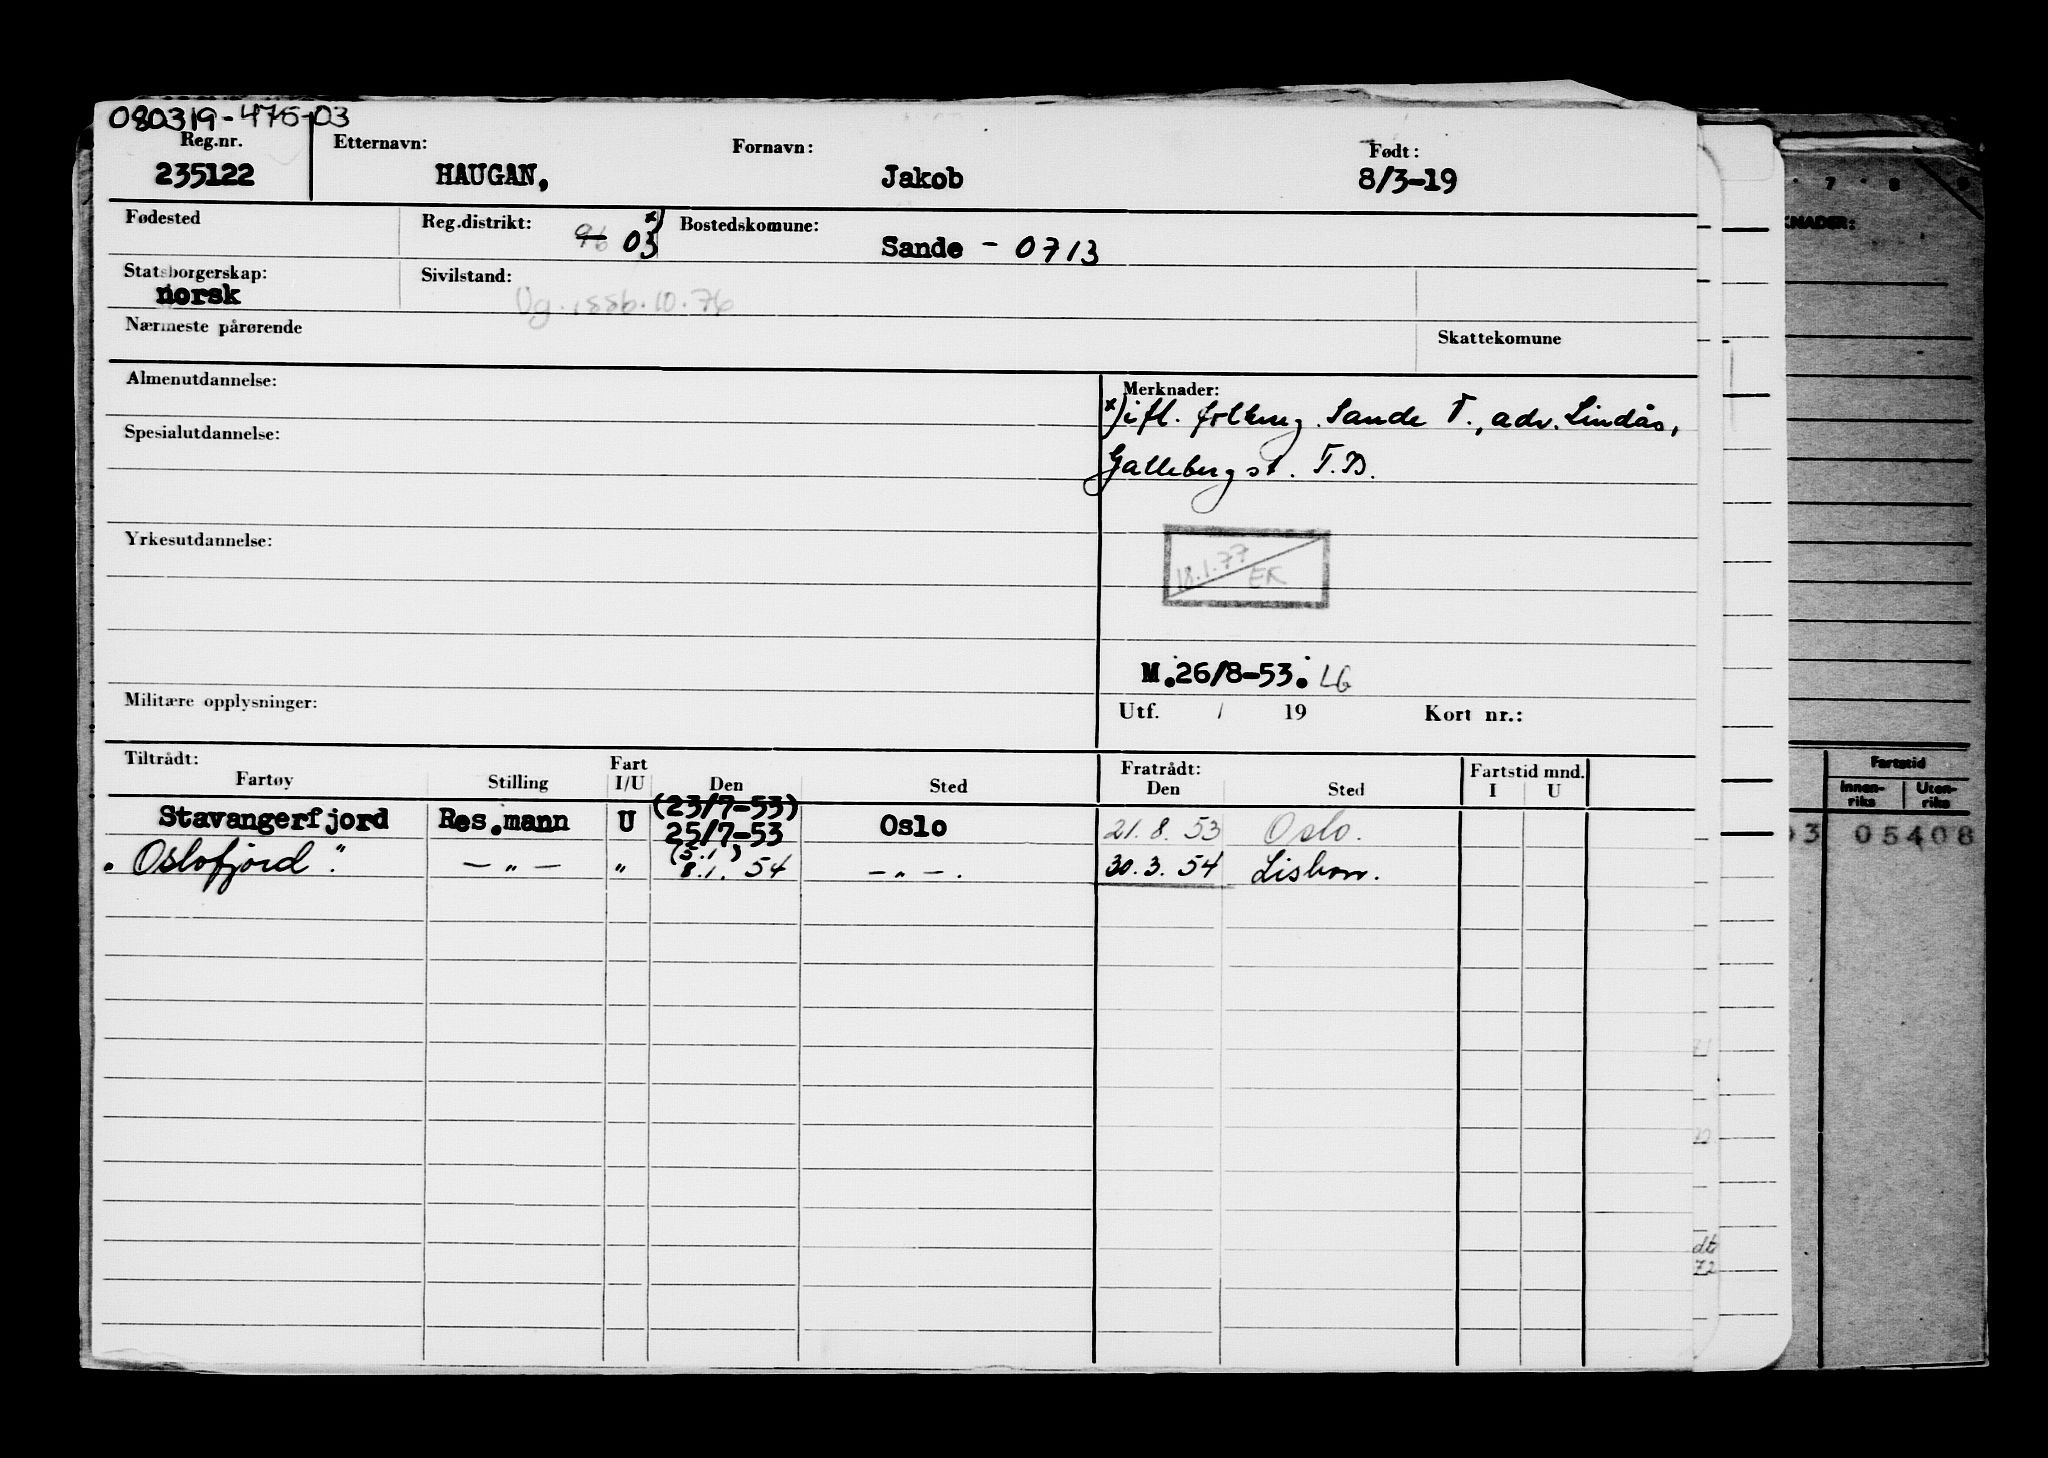 080319-476-03
Reg.nr. Etternavn: Fornavn: Født:
235122 HAUGAN, Jakob 8/3-19
Fødested Reg.distrikt: 96 03 x) Bostedskomune: Sande - 0713
Statsborgerskap: Sivilstand:
norsk
10.76
Nærmeste pårørende Skattekomune
Almenutdannelse: Merknader:
x) ifl. folkereg. Sande V., adv. Lindås,
Spesialutdannelse:
Galleberg st. T.B.
Yrkesutdannelse:
18.1.77
ER
M.26/8-53. LG
Militære opplysninger: Utf. / 19 Kort nr.:
Tiltrådt: Fart Fratrådt: Fartstid mnd.
Fartøy Stilling I/U Den Sted Den Sted I U
(23/7-53)
Stavangerfjord Res.mann U 25/7-53 Oslo 21.8.53 Oslo.
(5.1)
"Oslofjord". -"- " 8.1.54 -"-. 30.3.54 Lisbon.
7 8 9
KNADER:
Fartstid
Innen-riks Uten-riks
03 05408
71
72
dt
72